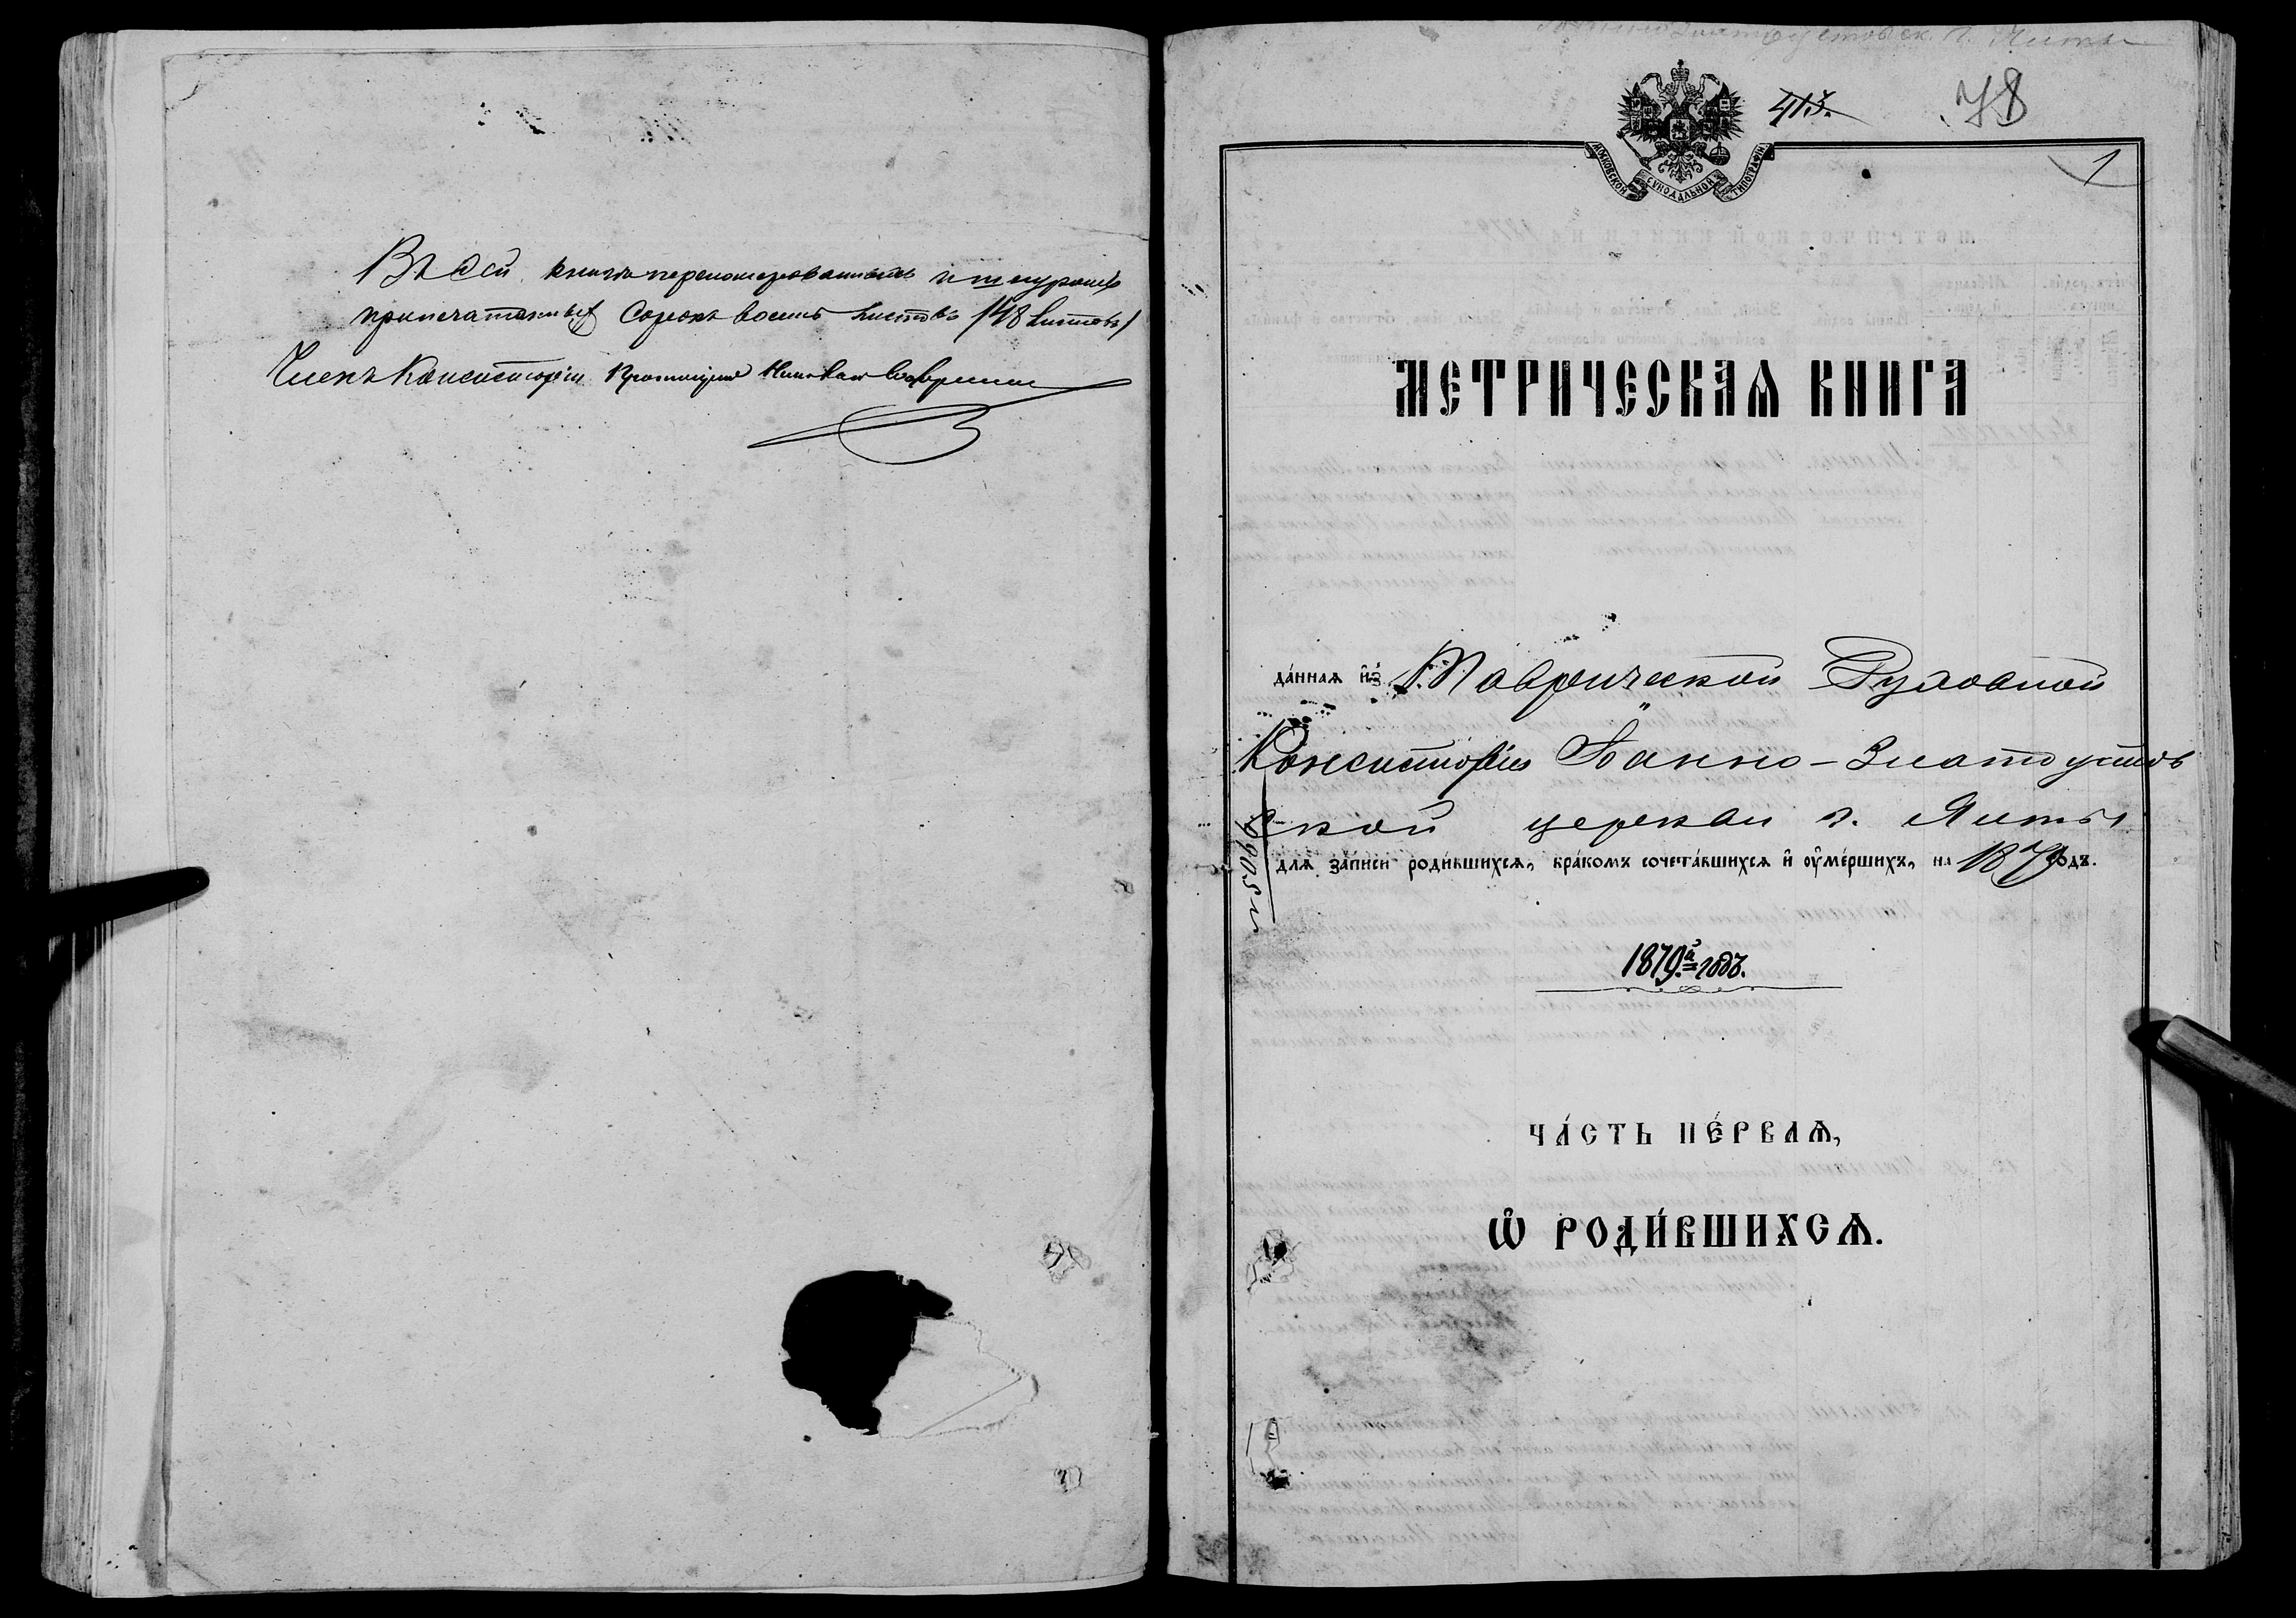 Въ сей книгѣ перенумерованныхъ и шнуромъ
припечатанныхъ сорокъ восемь листовъ /48 листовъ/
Членъ Консисторіи Протоіерей
Іоанно Златоустовск. г. Ялты
413.
78
1
МОСКОВСКОЙ СѴНОДАЛЬНОЙ ТИПОГРАФІИ
МЕТРИЧЕСКАѦ КНИГА
да́нная и҆з̾ Таврической Духовной
Консисторіи Іоанно-Златоустов
ской церкви г. Ялты
для за́писи роди́вшихся, бра́комъ сочета́вшихся и҆ ᲂу҆ме́ршихъ, на 1879 годъ.
1879.й годъ.
ЧА́СТЬ ПЕ́РВАѦ,
Ѽ РОДИ́ВШИХСѦ.